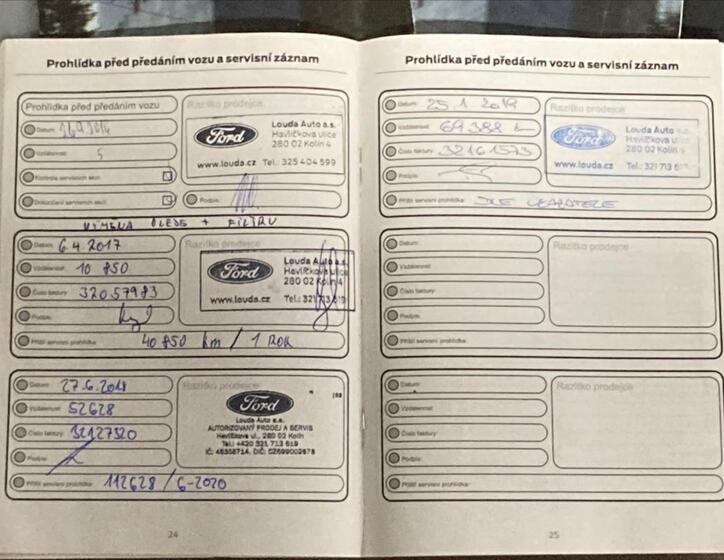 Prohlídka před předáním vozu a servisní záznam
Prohlídka před předáním vozu
Razítko prodejce
Datum:
Vzdálenost: 5
Kontrola servisních akcí:
Dokončení servisních akcí:
Ford
Louda Auto a.s.
Havlíčkova ulice
280 02 Kolín 4
www.louda.cz Tel.: 325 404 599
Podpis:
VÝMĚNA OLEJE + FILTRU
Datum: 6.4.2017
Vzdálenost: 10 850
Číslo faktury: 32057983
Podpis:
Příští servisní prohlídka: 40 850 km / 1 ROK
Razítko prodejce
Ford
Louda Auto a.s.
Havlíčkova ulice
280 02 Kolín 4
www.louda.cz Tel.: 321 713 619
Datum: 27.6.2018
Vzdálenost: 52628
Číslo faktury: 32127320
Podpis:
Příští servisní prohlídka: 112628 / 6-2020
Razítko prodejce
Ford
Louda Auto a.s.
AUTORIZOVANÝ PRODEJ A SERVIS
Havlíčkova ul., 280 02 Kolín
Tel.: +420 321 713 619
IČ: 46358714, DIČ: CZ699002678
24
Prohlídka před předáním vozu a servisní záznam
Datum: 25.1 2019
Vzdálenost: 69388
Číslo faktury: 32161573
Podpis:
Příští servisní prohlídka: DLE UKAZATELE
Razítko prodejce
Ford
Louda Auto
Havlíčkova ulice
280 02 Kolín 4
www.louda.cz Tel.: 321 713
Datum:
Vzdálenost:
Číslo faktury:
Podpis:
Příští servisní prohlídka:
Razítko prodejce
Datum:
Vzdálenost:
Číslo faktury:
Podpis:
Příští servisní prohlídka:
Razítko prodejce
25